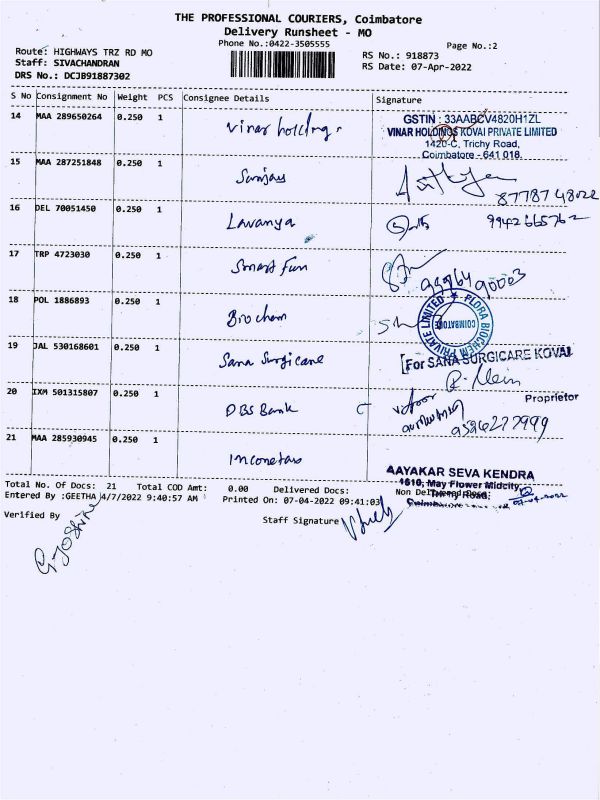 THE PROFESSIONAL COURIERS, Coimbatore
Delivery Runsheet - MO
Phone No.:0422-3505555
Page No.:2
Route: HIGHWAYS TRZ RD MO
Staff: SIVACHANDRAN
DRS No.: DCJB91887302
RS No.: 918873
RS Date: 07-Apr-2022
S No Consignment No Weight PCS Consignee Details Signature
14 MAA 289650264 0.250 1 Vinar holdings
GSTIN : 33AABCV4820H1ZL
VINAR HOLDINGS KOVAI PRIVATE LIMITED
1420-C, Trichy Road,
Coimbatore - 641 018.
15 MAA 287251848 0.250 1 Sanjay
8778748022
16 DEL 70051450 0.250 1 Lavanya
9942665762
17 TRP 4723030 0.250 1 Smart Fun
18 POL 1886893 0.250 1 Biochem
FLORA BIOCHEM PRIVATE LIMITED
COIMBATORE
19 JAL 530168601 0.250 1 Sana Surgicare
For SANA SURGICARE KOVAI
Proprietor
20 IXM 501315807 0.250 1 DBS Bank
21 MAA 285930945 0.250 1
AAYAKAR SEVA KENDRA
1610, May Flower Midcity,
Trichy Road,
Total No. Of Docs: 21 Total COD Amt: 0.00 Delivered Docs: Non Delivered Docs:
Entered By :GEETHA /4/7/2022 9:40:57 AM Printed On: 07-04-2022 09:41:03
Verified By
Staff Signature